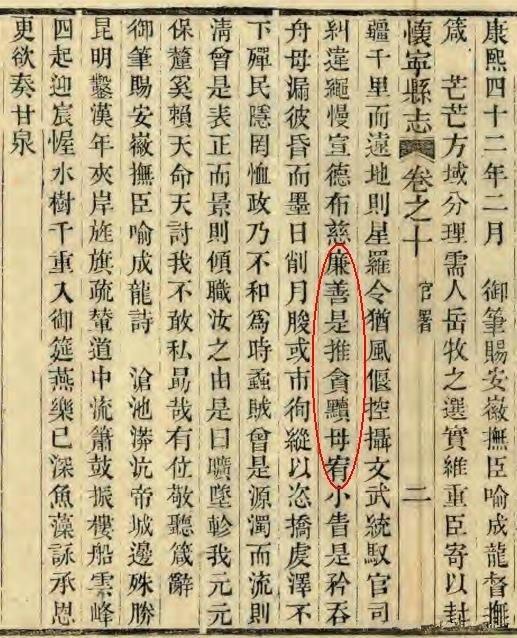 康熙四十二年二月　御筆賜安徽撫臣喻成龍督撫
箴　芒芒方域分理需人岳牧之選實維重臣寄以封
懷寧縣志　卷之十　官署　二
疆千里而遠地則星羅令猶風偃控攝文武統馭官司
糾違繩慢宣德布慈廉善是推貪黷毋宥小眚是矜吞
舟毋漏彼昏而墨日削月朘或市徇縱以恣撟虔澤不
下殫民隱罔恤政乃不和爲時蟊賊曾是源濁而流則
淸曾是表正而景則傾職汝之由是曰曠墜軫我元元
保釐奚賴天命天討我不敢私勗哉有位敬聽箴辭
御筆賜安徽撫臣喻成龍詩　滄池漭沆帝城邊殊勝
昆明鑿漢年夾岸旌旗疏輦道中流簫鼓振樓船雲峰
四起迎宸幄水樹千重入御筵燕樂已深魚藻詠承恩
更欲奏甘泉